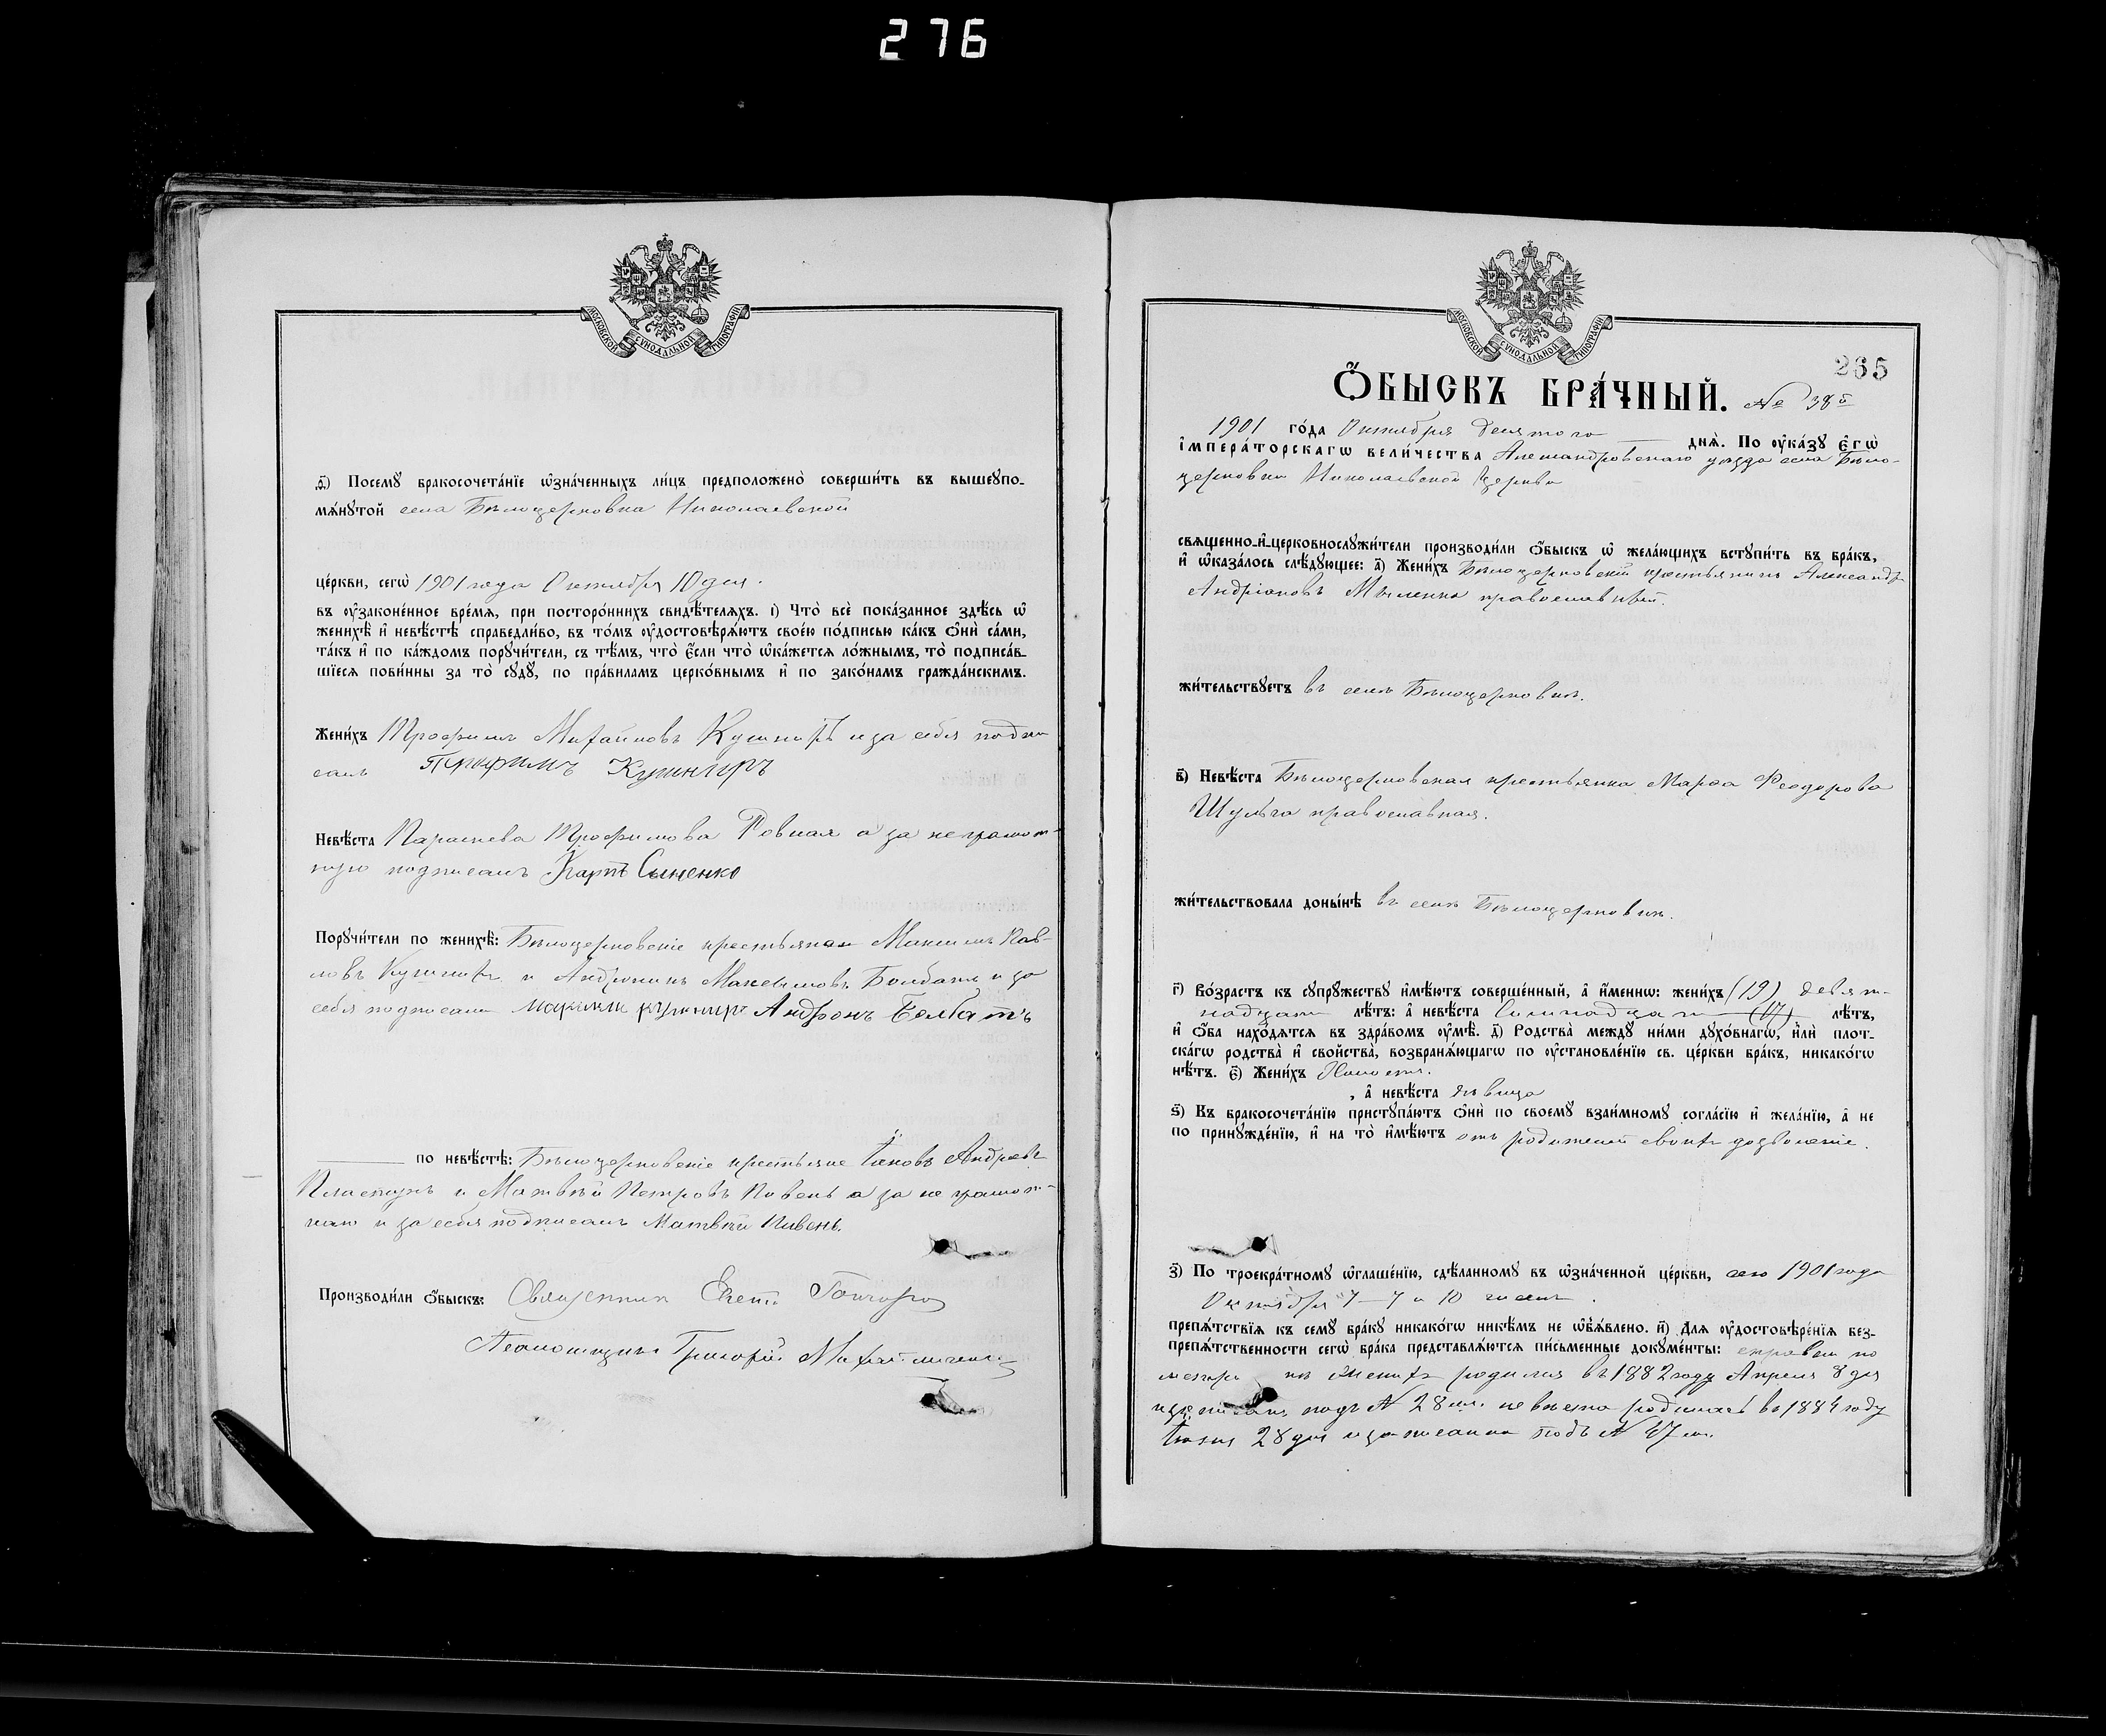 276
МОСКОВСКОЙ СѴНОДАЛЬНОЙ ТИПОГРАФІИ
Посемꙋ бракосочета́нїе ѡ҆зна́ченныхъ ли́цъ предположено̀ соверши́ть въ вышеꙋпо-
мѧ́нꙋтой села Бѣлоцерковка Николаевской
це́ркви, сегѡ̀ 1901 года Октября 10 дня.
въ ᲂу҆законе́нное вре́мѧ, при посторо́ннихъ свидѣ́телѧхъ. і) Что̀ всѐ пока́занное здѣ́сь ѡ҆
женихѣ̀ и҆ невѣ́стѣ справедли́во, въ то́мъ ᲂу҆достовѣрѧ́ютъ свое́ю по́дписью ка́къ ѻ҆нѝ са́ми,
та́къ и҆ по ка́ждомъ порꙋчи́тели, съ тѣ́мъ, что̀ є҆́сли что̀ ѡ҆ка́жетсѧ ло́жнымъ, то̀ подписа́в-
шїесѧ пови́нны за то̀ сꙋдꙋ̀, по пра́виламъ церко́внымъ и҆ по зако́намъ гражда́нскимъ.
Жени́хъ Трофимъ Михайловъ Кушниръ и за себя подпи
салъ Трофимъ Кушниръ
Невѣ́ста Параскева Трофимова Ровная а за неграмот-
ную подписалъ Карпъ
Порꙋчи́тели по женихѣ̀: Бѣлоцерковскіе крестьяне Максимъ Пав-
ловъ Кушниръ и Андроникъ Максимовъ Болбатъ и за
себя подписали максим кушнир Андронъ Болбатъ
по невѣ́стѣ: Бѣлоцерковскіе крестьяне Іаковъ Андреевъ
Пластунъ и Матвѣй Петровъ Пивень а за не грамот-
наго и за себя подписалъ Матвѣй Пивень.
Производи́ли ѻ҆́быскъ: Священник
Псаломщикъ Григорій
МОСКОВСКОЙ СѴНОДАЛЬНОЙ ТИПОГРАФІИ
265
Ѻ҆́БЫСКЪ БРА́ЧНЫЙ. № 38й
1901 го́да Октября десятого днѧ̀. По ᲂу҆ка́зꙋ Є҆гѡ̀
І҆мпера́торскагѡ вели́чества Александровскаго уѣзда села Бѣло-
церковки Николаевской церкви
свѧщенно-и҆-церковнослꙋжи́тели производи́ли ѻ҆́быскъ ѡ҆ жела́ющихъ встꙋпи́ть въ бра́къ,
и҆ ѡ҆каза́лось слѣ́дꙋющее: а҃) Жени́хъ Бѣлоцерковскій крестьянинъ Александръ
Андріановъ православный.
жи́тельствꙋетъ въ селѣ Бѣлоцерковкѣ.
в҃) Невѣ́ста Бѣлоцерковская крестьянка Марѳа Ѳеодорова
Шульга православная.
жи́тельствовала доны́нѣ въ селѣ Бѣлоцерковкѣ.
г҃) Во́зрастъ къ сꙋпрꙋ́жествꙋ и҆мѣ́ютъ соверше́нный, а҆ и҆́меннѡ: жени́хъ (19) девят-
надцати лѣ́тъ: а҆ невѣ́ста Семнадцати (17) лѣ́тъ,
и҆ ѻ҆́ба нахо́дѧтсѧ въ здра́вомъ ᲂу҆мѣ̀. д҃) Родства̀ междꙋ̀ ни́ми дꙋхо́внагѡ, и҆лѝ плот-
ска́гѡ родства̀ и҆ свойства̀, возбранѧ́ющагѡ по ᲂу҆становле́нїю св. це́ркви бра́къ, никако́гѡ
нѣ́тъ. є҃) Жени́хъ Холостъ.
, а҆ невѣ́ста дѣвица
ѕ҃) Къ бракосочета́нїю пристꙋпа́ютъ ѻ҆нѝ по своемꙋ̀ взаи́мномꙋ согла́сїю и҆ жела́нїю, а҆ не
по принꙋжде́нїю, и҆ на то̀ и҆мѣ́ютъ отъ родителей своихъ дозволеніе.
з҃) По троекра́тномꙋ ѡ҆глаше́нїю, сдѣ́ланномꙋ въ ѡ҆зна́ченной це́ркви, сего 1901 года
Октября 7 и 10 чиселъ.
препѧ́тствїѧ къ семꙋ̀ бра́кꙋ никако́гѡ никѣ́мъ не ѡ҆б̾ѧ́влено. и҃) Длѧ ᲂу҆достовѣре́нїѧ без-
препѧ́тственности сегѡ̀ бра́ка представлѧ́ютсѧ пи́сьменные докꙋме́нты: справки по
метри женихъ родился въ 1882 году Апреля 8 дня
и записанъ подъ N 28 м. невѣста родилась въ 1884 году
Іюня 28 дня и записанна подъ N 47 м.